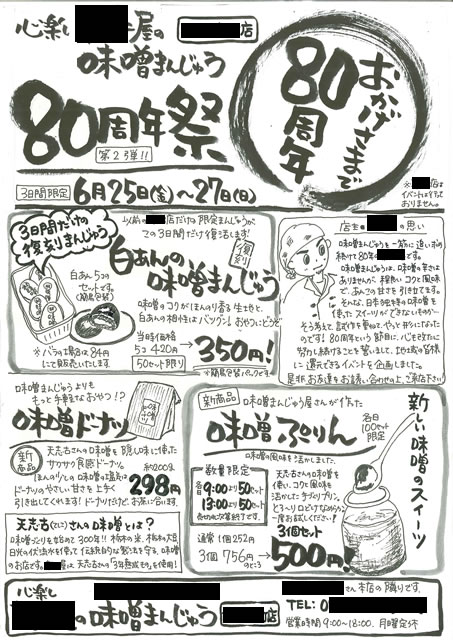 心楽し 屋の 店
味噌まんじゅう
80周年祭
第2弾!!
おかげさまで
80周年
3日間限定 6月25日(金)~27日(日)
※ 店は
イベントは行って
おりません。
3日間だけの
復刻まんじゅう
白あん5コの
セットです。
(簡易包装)
※バラの場合は84円
にて販売いたします。
以前の 店だけの限定まんじゅうが
この3日間だけ復活します!
復刻
白あんの
味噌まんじゅう
味噌のコクがほんのり香る生地と、
白あんの相性はバツグン!おやつにどうぞ
当時価格
5コ 420円
50セット限り
350円!
※簡易包装パックです。
店主 の思い
味噌まんじゅうを一筋に追い求め
続けて80年
味噌まんじゅうは、味噌の辛さは
ありませんが、程良いコクと風味
で、あんこの甘さを引き立てます。
そんな、日本独自の味噌を
使ったスイーツができないものか…
そう考えて、試作を重ね、やっと形になった
のです!80周年という節目に、心も新たに
努力し続けることを誓いまして、地域の皆様
に還元できるイベントを企画しました。
是非お友達をお誘い合わせの上、ご来店下さい!
味噌まんじゅうよりも
もっと手軽なおやつ!?
味噌ドーナツ
新商品
天志古さんの味噌を隠し味に使った
サクサク食感ドーナツ。
ほんのりとの味噌の塩気が 約200g
ドーナツのやさしい甘さを上手く
引き出してくれます!ドーナツだけど、お茶に合います。
298円
天志古さんの味噌とは?
味噌づくりを始めて300年!!栃木の米、栃木の大豆
日光の伏流水を使って伝統的な製法を守る、味噌
のお店です。 屋は、天志古さんの「3年熟成もの」を使用!
新商品 味噌まんじゅう屋さんが作った
味噌ぷりん
各日
100セット
限定
味噌の風味を活かしました。
数量限定
各日
9:00より50セット
13:00より50セット
売切れ次第終了です。
天志古さんの味噌を
使い、コクと風味を
活かした手づくりプリン。
とろ~り口どけなめらか。
一度お試しください!
通常1個252円
3個756円
のところ
3個セット
500円!
新しい味噌のスイーツ
心楽し
の味噌まんじゅう 店
さん本店の隣りです。
TEL: 0
営業時間9:00~18:00、月曜定休